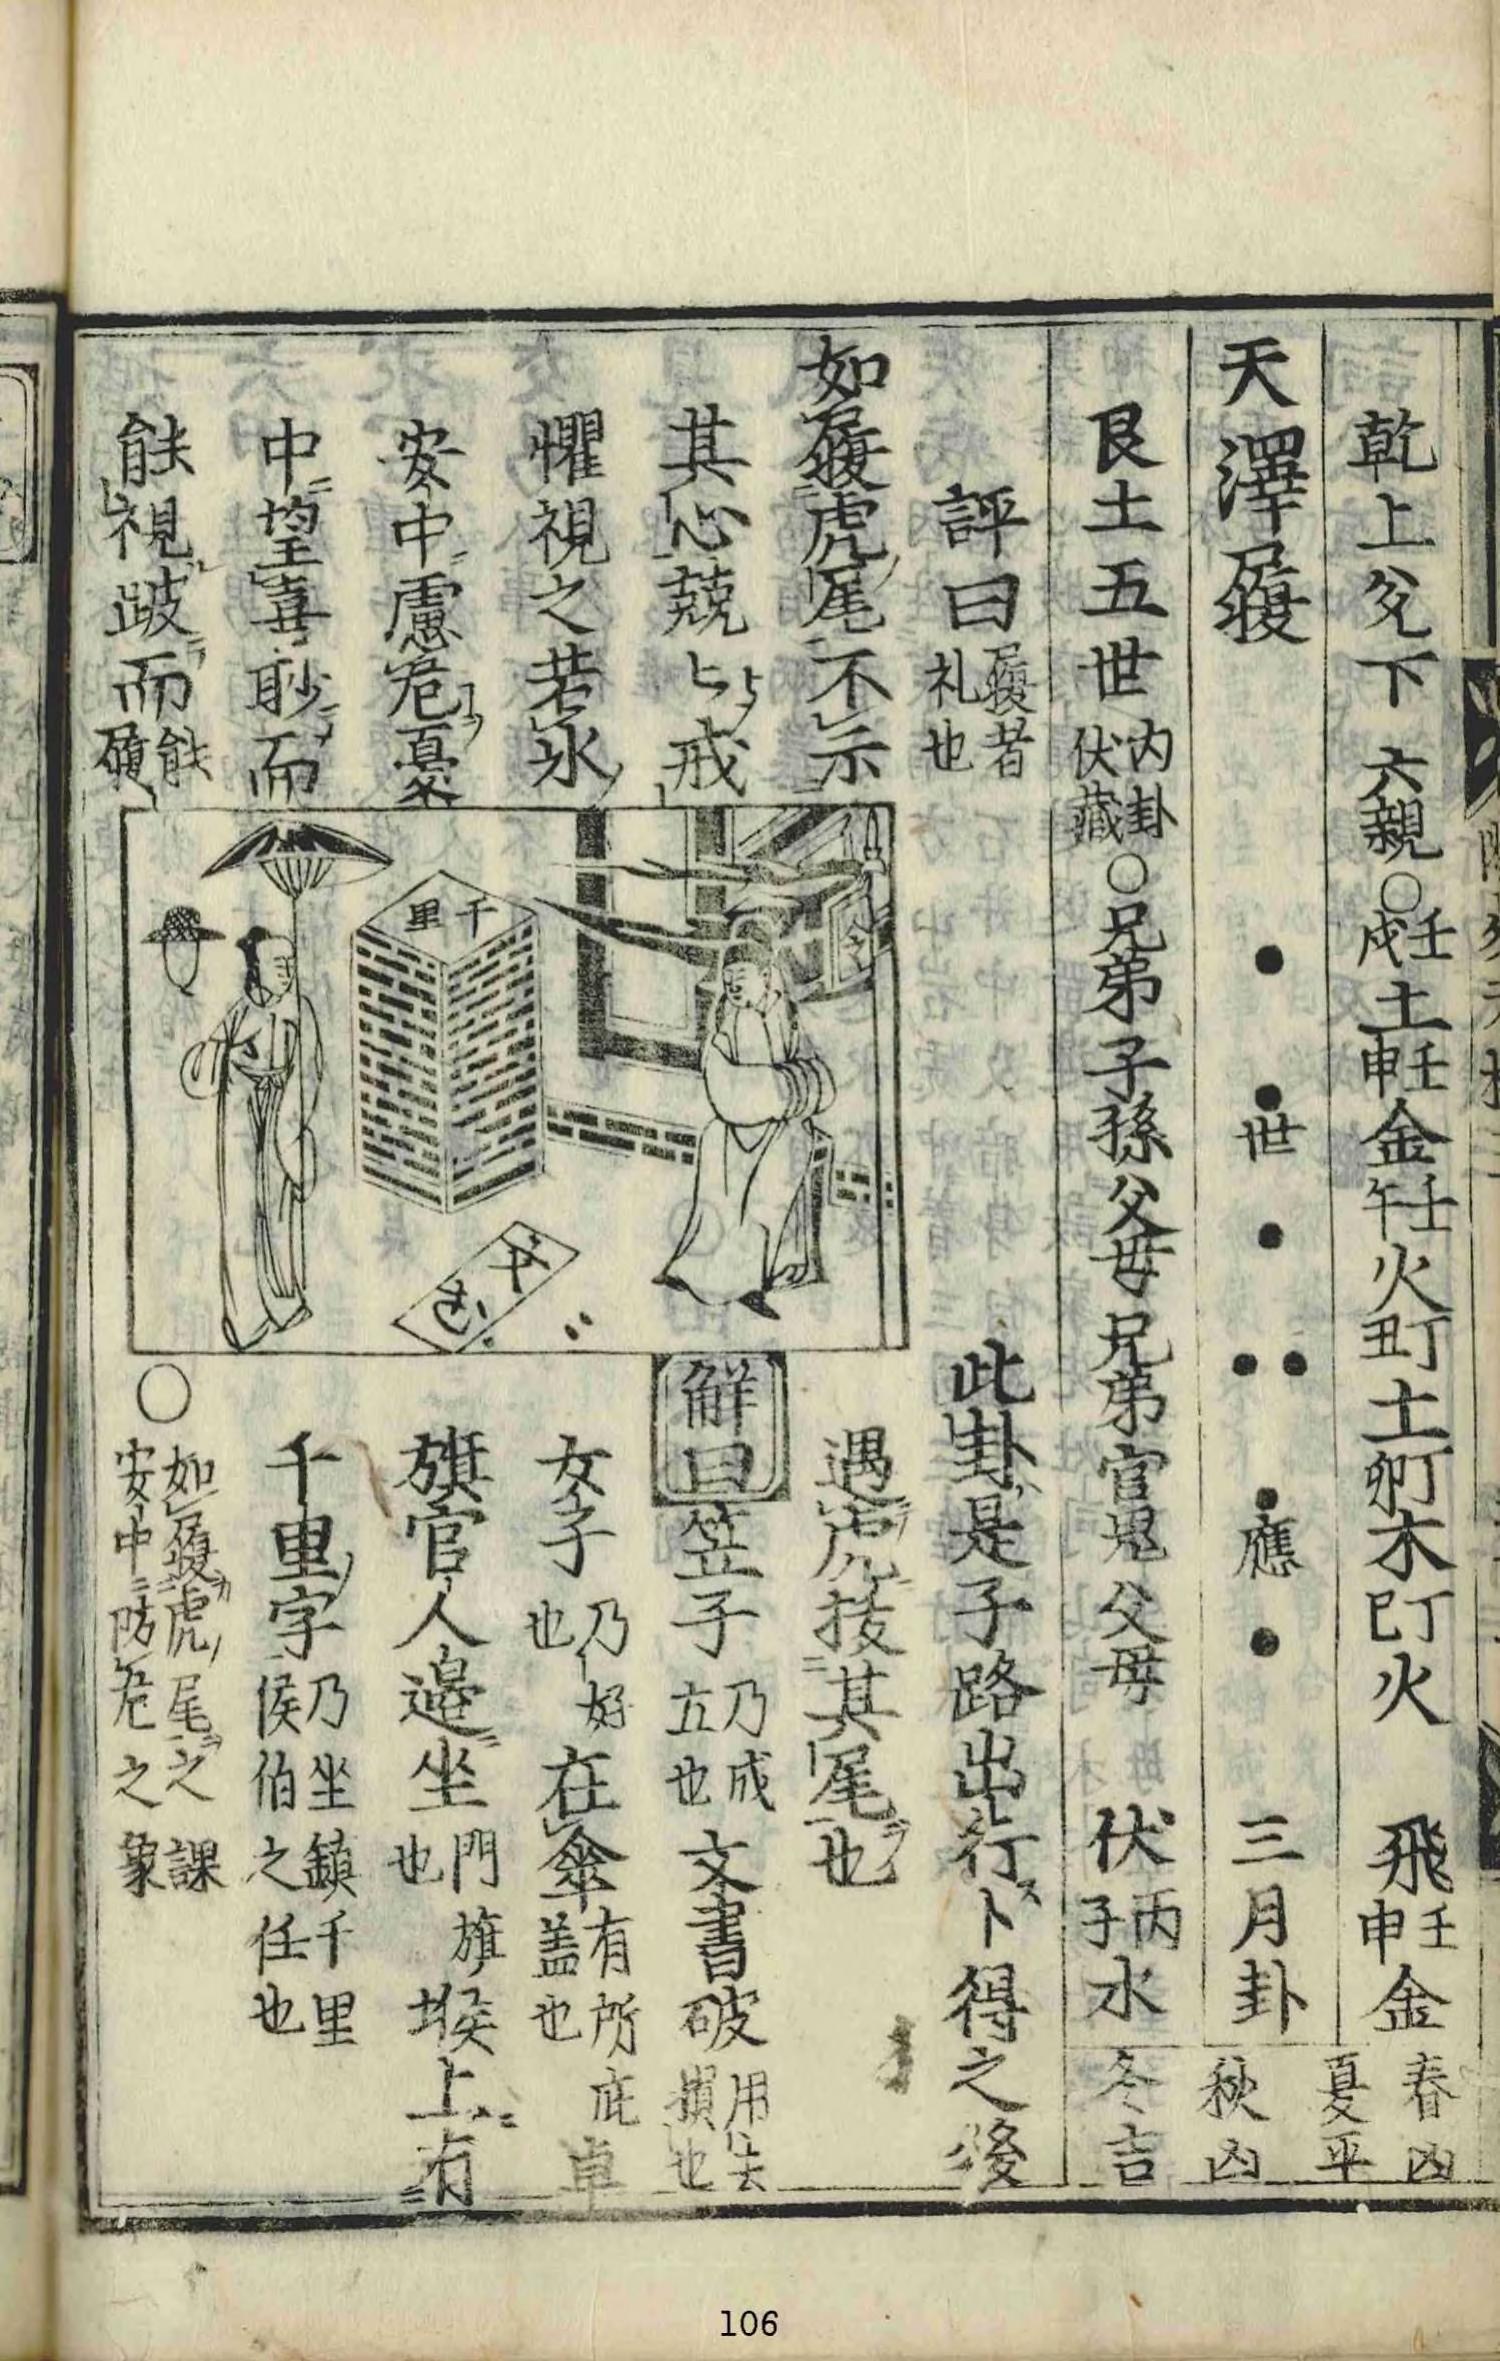 乾上兌下 六親〇壬戌土壬申金壬午火丁丑土丁卯木丁巳火 飛壬申金 春凶 夏平
天澤履 世 應 三月卦 秋凶
艮土五世內卦伏藏〇兄弟子孫父母兄弟官鬼父母 伏丙子水 冬吉
評曰履者礼也 此卦是子路出行卜得之後
如履虎尾不示 遇虎拔其尾也
其心兢〻戒 觧曰笠子乃成立也文書破用去損也
懼視之若氷 女子乃好也在傘有所庇蓋也 卓
安中慮危憂 旗官人邉坐門旗也堠上有
中望喜眇而 千里字乃坐鎮千里侯伯之任也
䏻視跛而䏻
〇如履虎尾之課
安中防危之象
千里
文書
106